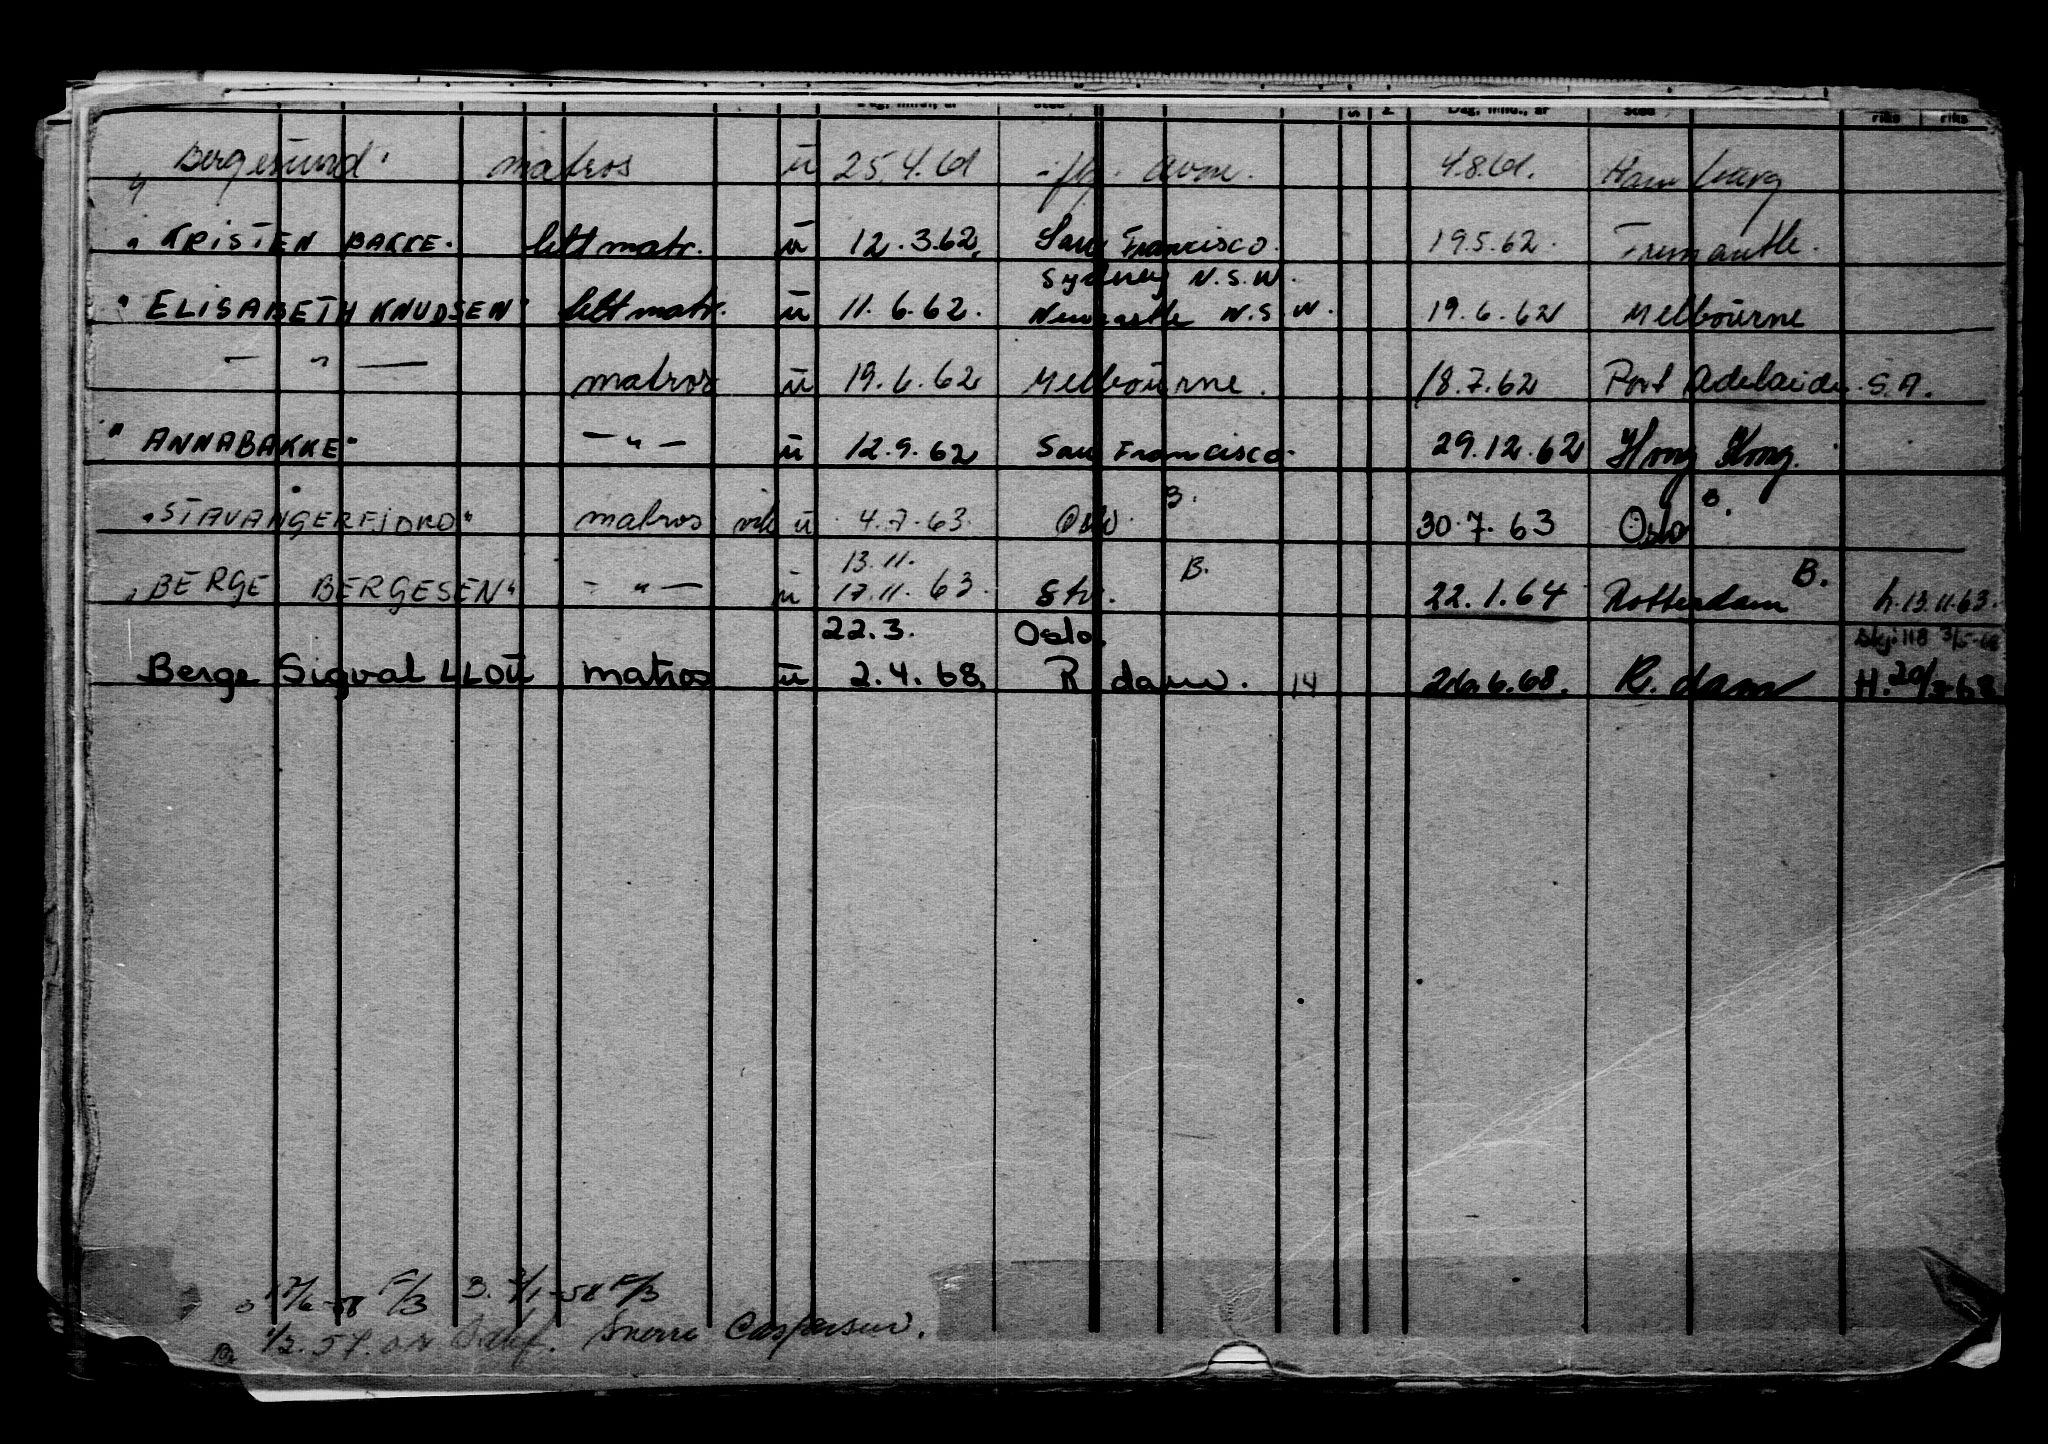 Dag, mnd., år Sted S M Dag, mnd., år Sted riks riks
"Bergesund" matros ū 25.4.61 4.8.61. Hamburg
"KRISTEN BAKKE" lettmatr. ū 12.3.62. San Francisco. 19.5.62. Fremantle.
Sydney N.S.W.
"ELISABETH KNUDSEN" lettmatr. ū 11.6.62. Newcastle N.S.W. 19.6.62 Melboūrne
— " — matros ū 19.6.62 Melboūrne. 18.7.62 Port Adelaide S.A.
"ANNABAKKE" — " — ū 12.9.62 San Francisco. 29.12.62 Hong Kong.
B. B.
"STAVANGERFJORD" matros vik ū 4.7.63. Oslo. 30.7.63 Oslo
13.11. B. B.
"BERGE BERGESEN" — " — ū 17.11.63. Sth. 22.1.64 Rotterdam h.13.11.63.
22.3. Oslo.
Berge Sigval LLOŪ matros ū 2.4.68. R dam. 14 26.6.68. R. dam H.20/3-68
17/6-58 F/3 B. 2/1-58 F/3
1/2.57. Snorre Caspersen.